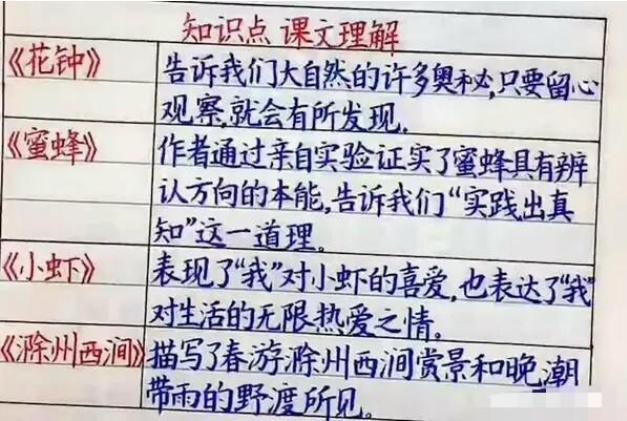 知识点 课文理解
《花钟》
告诉我们大自然的许多奥秘,只要留心
观察,就会有所发现。
《蜜蜂》
作者通过亲自实验证实了蜜蜂具有辨
认方向的本能,告诉我们“实践出真
知”这一道理。
《小虾》
表现了“我”对小虾的喜爱,也表达了“我”
对生活的无限热爱之情。
《滁州西涧》
描写了春游滁州西涧赏景和晚潮
带雨的野渡所见。